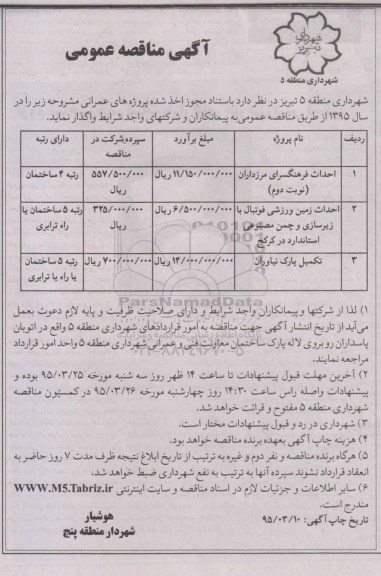 شهرداری تبریز
آگهی مناقصه عمومی
شهرداری منطقه ۵
شهرداری منطقه ۵ تبریز در نظر دارد باستناد مجوز اخذ شده پروژه های عمرانی مشروحه زیر را در
سال ۱۳۹۵ از طریق مناقصه عمومی به پیمانکاران و شرکتهای واجد شرایط واگذار نماید.
ردیف نام پروژه مبلغ برآورد سپرده شرکت در مناقصه دارای رتبه
۱ احداث فرهنگسرای مرزداران (نوبت دوم) ۱۱/۱۵۰/۰۰۰/۰۰۰ ریال ۵۵۷/۵۰۰/۰۰۰ ریال رتبه ۴ ساختمان
۲ احداث زمین ورزشی فوتبال با زیرسازی و چمن مصنوعی استاندارد در کرکج ۶/۵۰۰/۰۰۰/۰۰۰ ریال ۳۲۵/۰۰۰/۰۰۰ ریال رتبه ۵ ساختمان یا راه ترابری
۳ تکمیل پارک نیاوران ۱۴/۰۰۰/۰۰۰/۰۰۰ ریال ۷۰۰/۰۰۰/۰۰۰ ریال رتبه ۵ ساختمان یا راه یا ترابری
ParsNamadData
۱) لذا از شرکتها و پیمانکاران واجد شرایط و دارای صلاحیت ظرفیت و پایه لازم دعوت بعمل
می‌آید از تاریخ انتشار آگهی جهت مناقصه به امور قراردادهای شهرداری منطقه ۵ واقع در اتوبان
پاسداران روبروی لاله پارک ساختمان معاونت فنی و عمرانی شهرداری منطقه ۵ واحد امور قرارداد
مراجعه نمایند.
۲) آخرین مهلت قبول پیشنهادات تا ساعت ۱۴ ظهر روز سه شنبه مورخه ۹۵/۰۳/۲۵ بوده و
پیشنهادات واصله راس ساعت ۱۴:۳۰ روز چهارشنبه مورخه ۹۵/۰۳/۲۶ در کمسیون مناقصه
شهرداری منطقه ۵ مفتوح و قرائت خواهد شد.
۳) شهرداری در رد و قبول پیشنهادات مختار است.
۴) هزینه چاپ آگهی بعهده برنده مناقصه خواهد بود.
۵) هرگاه برنده مناقصه و نفر دوم و غیره به ترتیب از تاریخ ابلاغ نتیجه ظرف مدت ۷ روز حاضر به
انعقاد قرارداد نشوند سپرده آنها به ترتیب به نفع شهرداری ضبط خواهد شد.
۶) سایر اطلاعات و جزئیات لازم در اسناد مناقصه و سایت اینترنتی WWW.M5.Tabriz.ir
مندرج است.
تاریخ چاپ آگهی: ۹۵/۰۳/۱۰
هوشیار
شهردار منطقه پنج